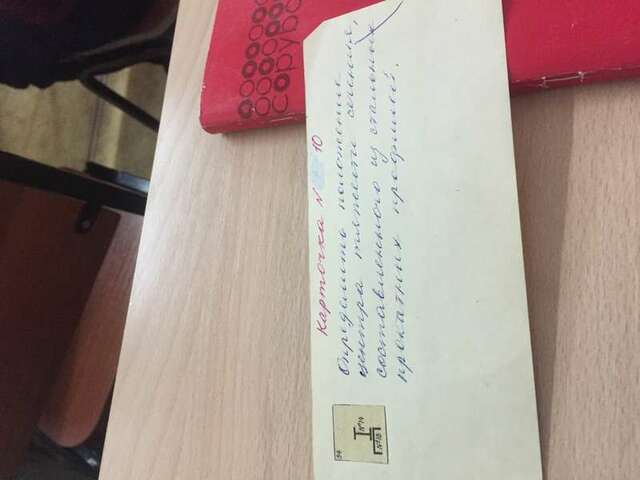 Карточка N 10
Определить положение
центра тяжести сечения,
составленного из стальных
прокатных профилей.
54
N°14
N°18